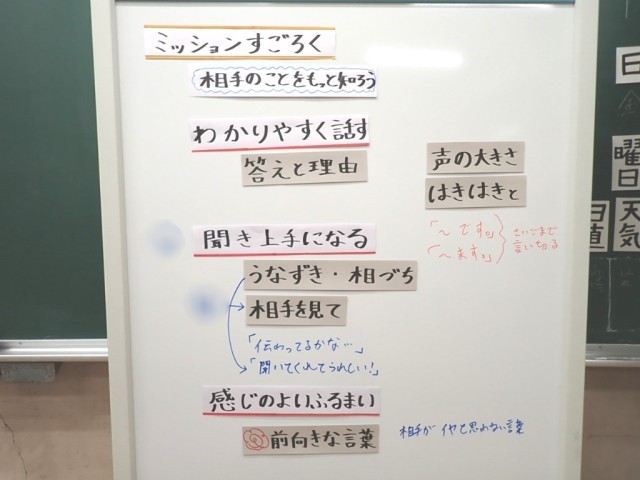 ミッションすごろく
相手のことをもっと知ろう
わかりやすく話す
答えと理由
声の大きさ
はきはきと
「〜です。」
「〜ます。」
さいごまで
言い切る
聞き上手になる
うなずき・相づち
相手を見て
「伝わってるかな…」
「聞いてくれてうれしい!」
感じのよいふるまい
前向きな言葉
相手がイヤと思わない言葉
日
曜
日
天
気
日
直